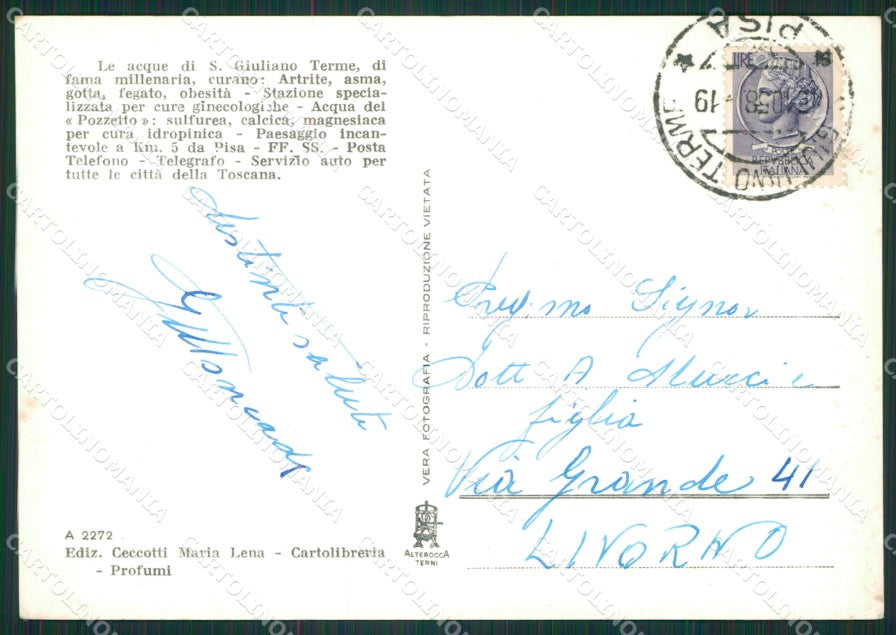 Le acque di S. Giuliano Terme, di
fama millenaria, curano: Artrite, asma,
gotta, fegato, obesità - Stazione specia-
lizzata per cure ginecologiche - Acqua del
« Pozzetto »: sulfurea, calcica, magnesiaca
per cura idropinica - Paesaggio incan-
tevole a Km. 5 da Pisa - FF. SS. - Posta
Telefono - Telegrafo - Servizio auto per
tutte le città della Toscana.
distinti saluti
VERA FOTOGRAFIA - RIPRODUZIONE VIETATA
LIRE
REPUBBLICA
ITALIANA
GIULIANO TERME
PISA
Preg.mo Signor
Dott A Mucci e
figlia
Via Grande 41
LIVORNO
A 2272
Ediz. Ceccotti Maria Lena - Cartolibreria
- Profumi
ALTEROCCA
TERNI
CARTOLINOMANIA